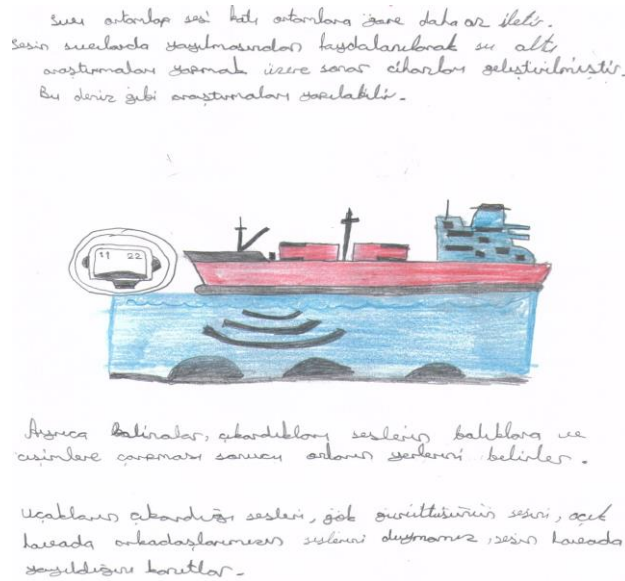 Sıvı ortamlar sesi katı ortamlara göre daha az iletir.
Sesin sıvılarda yayılmasından faydalanılarak su altı
araştırmaları yapmak üzere sonar cihazları geliştirilmiştir.
Bu deniz gibi araştırmaları yapılabilir.
11 22
Ayrıca balinalar, çıkardıkları seslerin balıklara ve
cisimlere çarpması sonucu onların yerlerini belirler.
Uçakların çıkardığı sesleri, gök gürültüsünün sesini, açık
havada arkadaşlarımızın seslerini duymamız, sesin havada
yayıldığını kanıtlar.